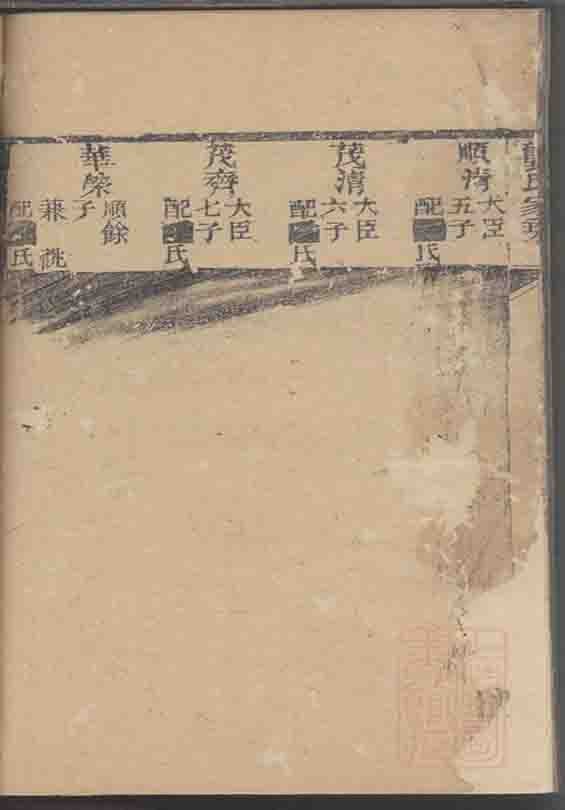 氏家乘
順清
大臣
五子
配氏
茂清
大臣
六子
配氏
茂齊
大臣
七子
配氏
華榮
順餘
子
兼祧
配氏